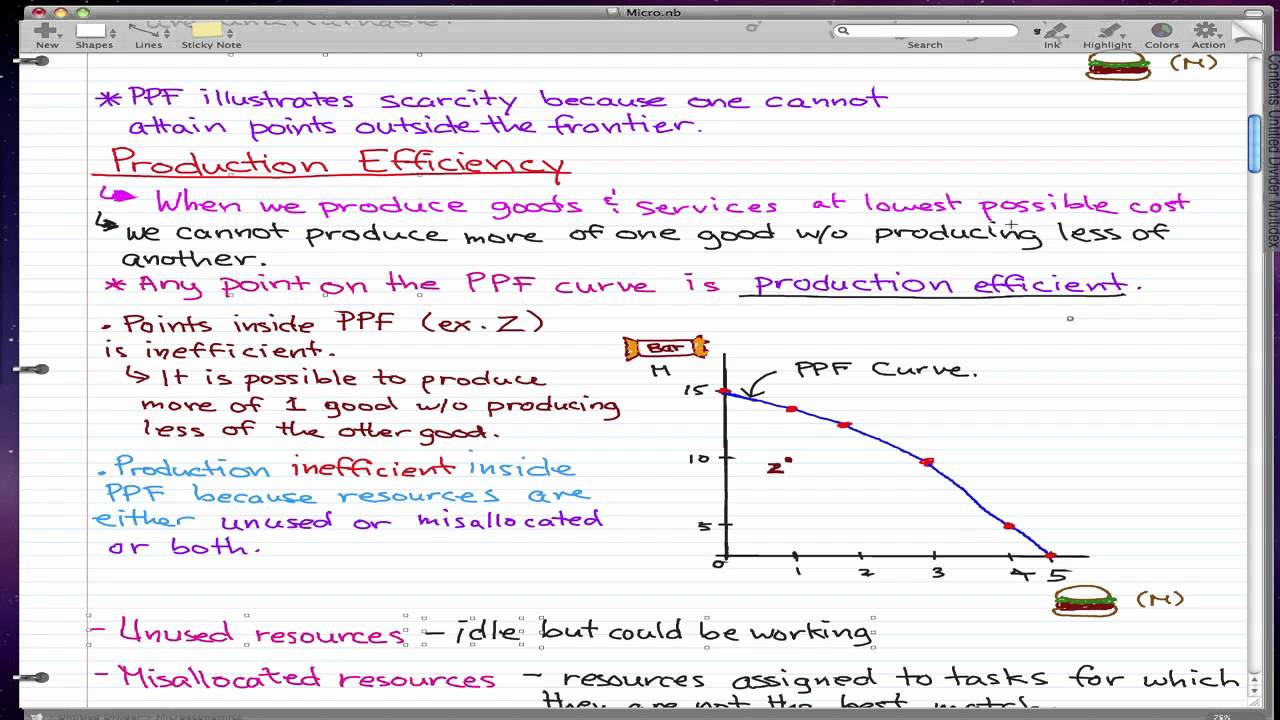 Micro.nb
New Shapes Lines Sticky Note Search Ink Highlight Colors Action
(M)
* PPF illustrates scarcity because one cannot
attain points outside the frontier.
Production Efficiency
↳ When we produce goods & services at lowest possible cost
↳ we cannot produce more of one good w/o producing less of
another.
* Any point on the PPF curve is production efficient.
• Points inside PPF (ex. Z)
is inefficient.
↳ It is possible to produce
more of 1 good w/o producing
less of the other good.
• Production inefficient inside
PPF because resources are
either unused or misallocated
or both.
Bar
M
PPF Curve.
15
10
Z
5
0 1 2 3 4 5
(M)
- Unused resources - idle but could be working
- Misallocated resources - resources assigned to tasks for which
they are not the best
Contents Unified Divider Multidex
75%